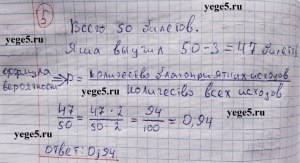 yege5.ru
5
Всего 50 билетов.
yege5.ru
Яша выучил 50-3=47 билетов
формула вероятности ⇒ p = количество благоприятных исходов / количество всех исходов
yege5.ru
47/50 = 47·2/50·2 = 94/100 = 0,94
yege5.ru
yege5.ru
ответ: 0,94
yege5.ru